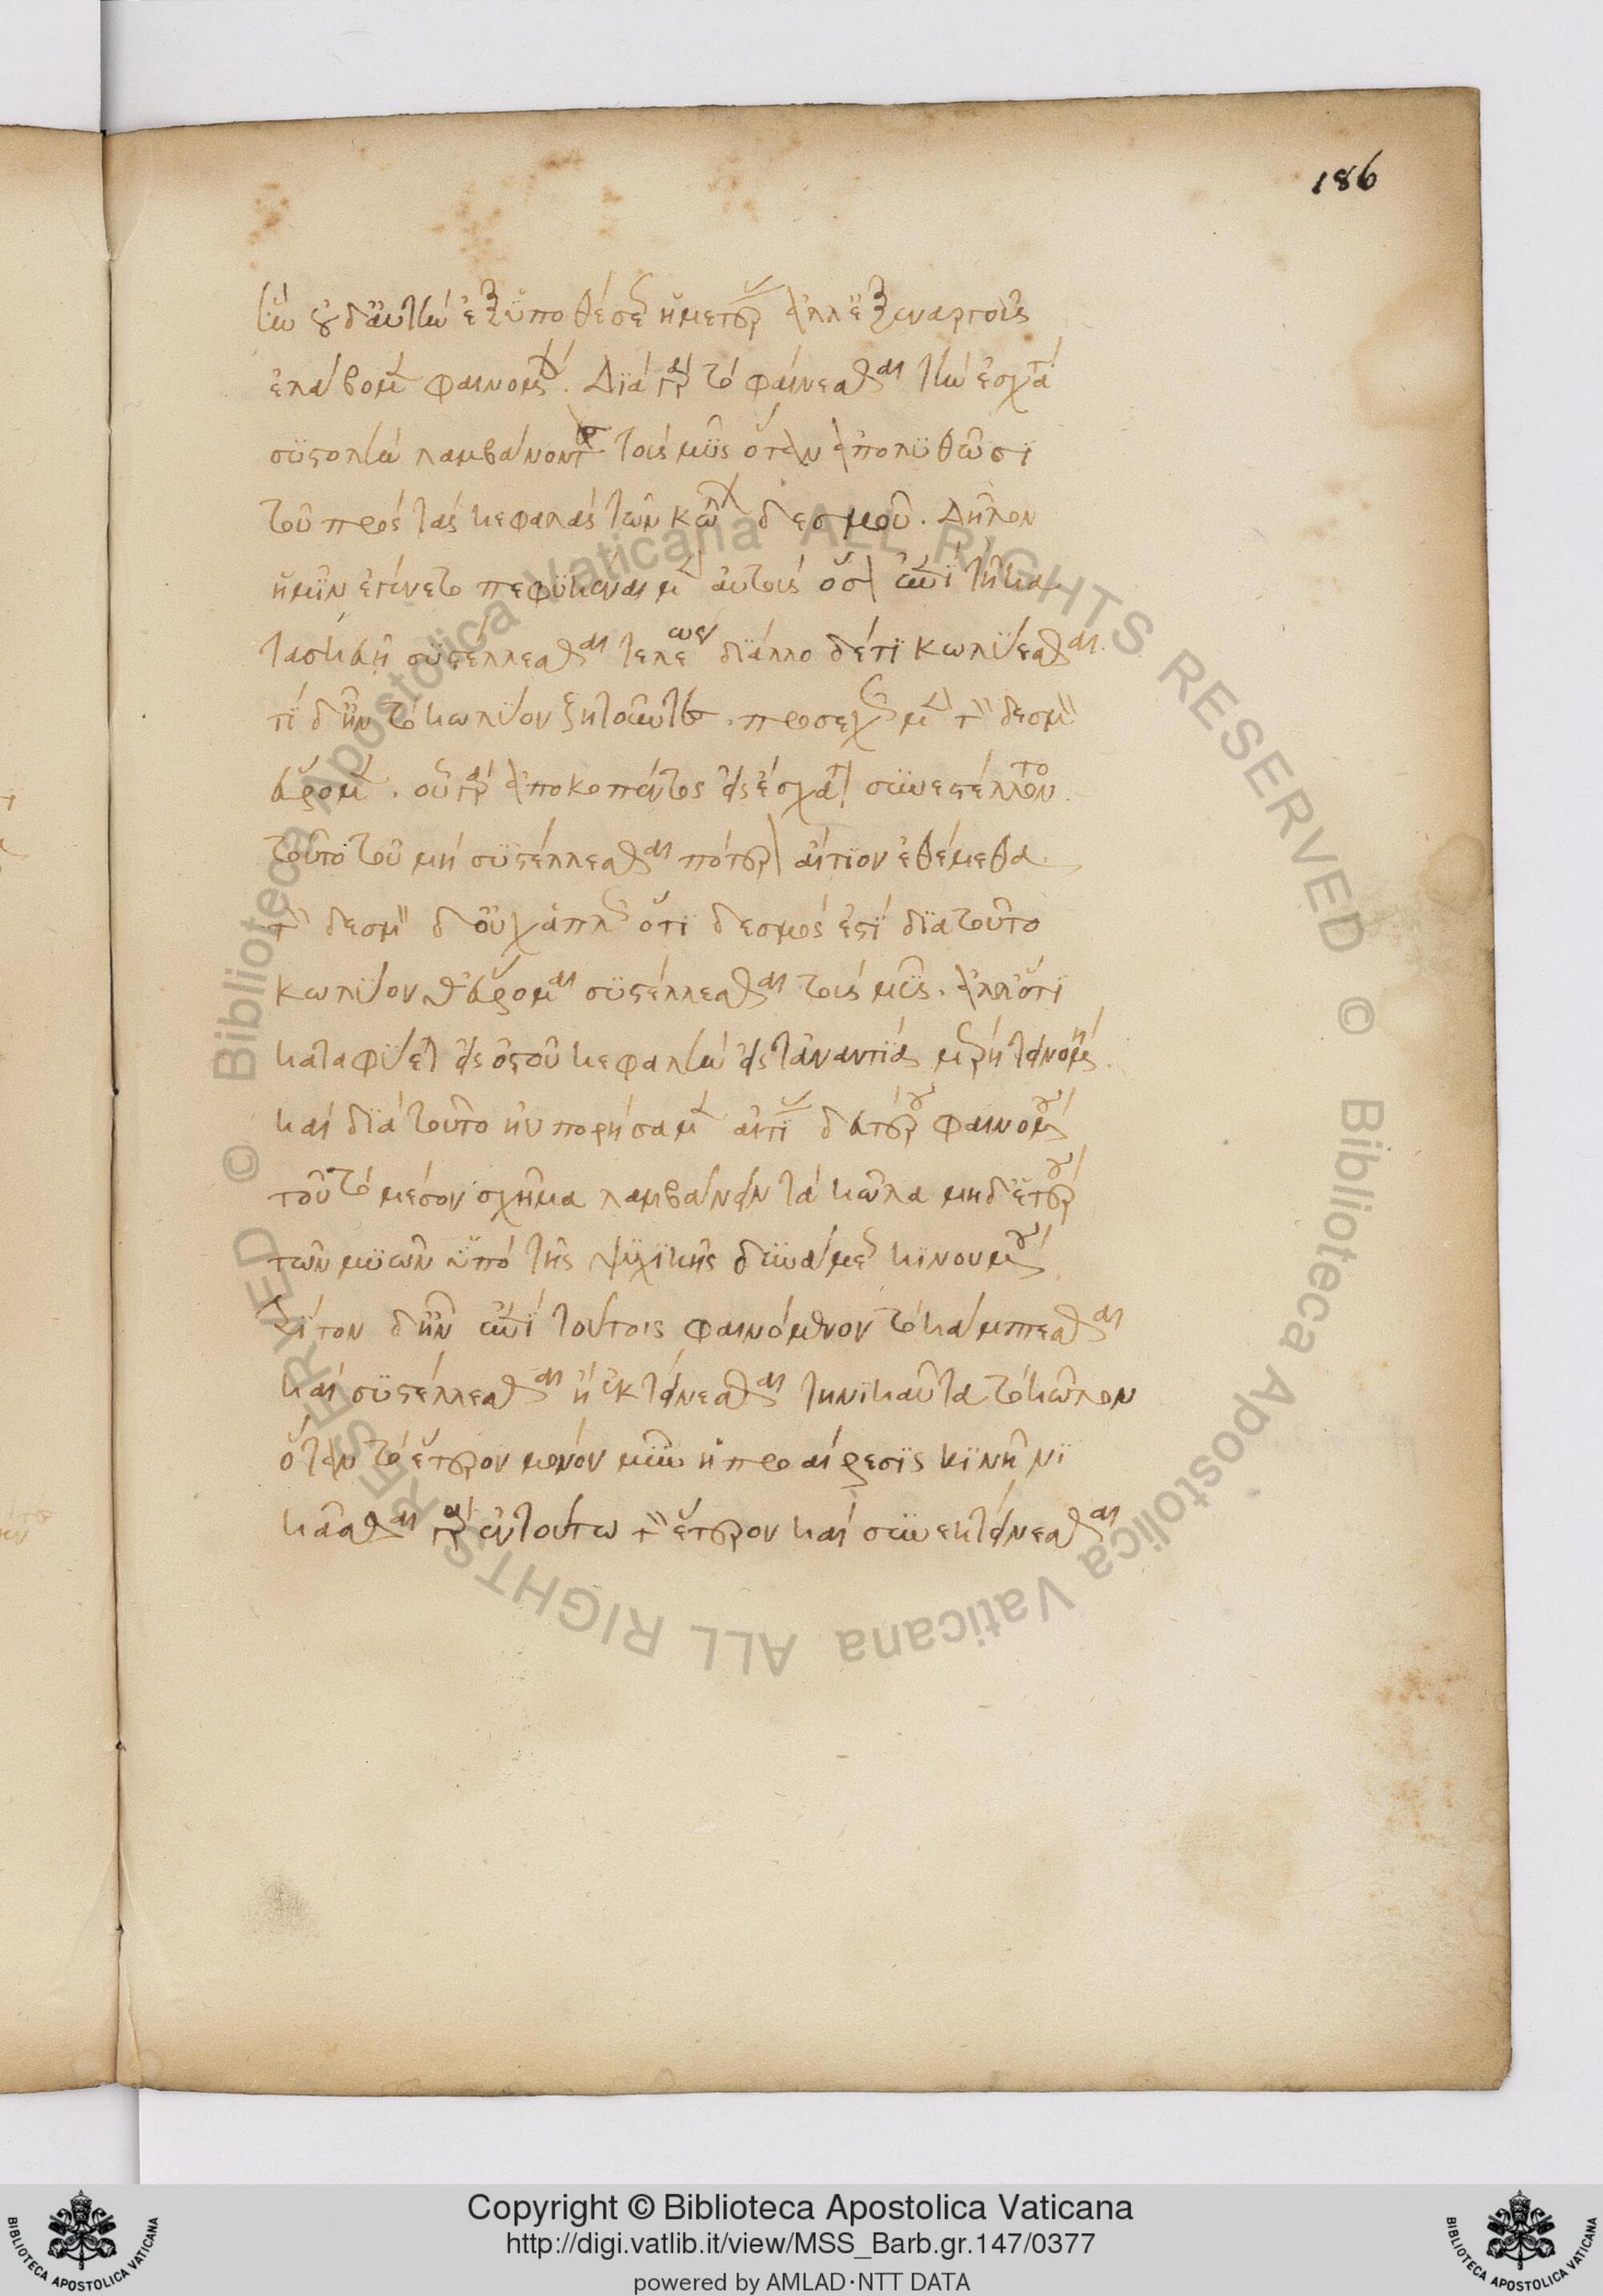 186
τὴν οὐδ' αὐτὴν ἐξ ὑποθέσεως ἡμετέρας ἀλλ' ἐξ ἐναργοῦς
ἐλάβομεν φαινομένου. Διὰ γὰρ τὸ φαίνεσθαι τὴν ἐσχάτην
συστολὴν λαμβάνοντας τοὺς μῦς ὅταν ἀπολυθῶσι
τοῦ πρὸς τὰς κεφαλὰς τῶν κώλων δεσμοῦ. Δῆλον
ἡμῖν ἐγίνετο πεφυκέναι μὲν αὐτοὺς ὅσον ἐπὶ τῇ κα
τασκευῇ συστέλλεσθαι τελέως δι' ἄλλο δέ τι κωλύεσθαι.
τί δὴ τὸ κωλῦον ζητοῦντες. προσεχῶς μὲν τὸν δεσμὸν
εὕρομεν. οὗ γὰρ ἀποκοπέντος εἰς ἔσχατον συνεστέλλοντο
τοῦτο τοῦ μὴ συστέλλεσθαι πρότερον αἴτιον ἐθέμεθα
τὸν δεσμὸν δ' οὐχ ἁπλῶς ὅτι δεσμός ἐστι διὰ τοῦτο
κωλῦον εὕρομεν συστέλλεσθαι τοὺς μῦς. ἀλλ' ὅτι
καταφύεται εἰς ὀστοῦ κεφαλὴν εἰς τἀναντία μεταγομένην.
καὶ διὰ τοῦτο ηὐπορήσαμεν αἰτίας δευτέρου φαινομένου
τοῦ τὸ μέσον σχῆμα λαμβάνειν τὰ κῶλα μηδετέρου
τῶν μυῶν ὑπὸ τῆς ψυχικῆς δυνάμεως κινουμένου
τρίτον δ' ἦν ἐπὶ τούτοις φαινόμενον τὸ κάμπτεσθαι
καὶ συστέλλεσθαι ἢ ἐκτείνεσθαι τηνικαῦτα τὸ κῶλον
ὅταν τὸ ἕτερον μόνον μῦν ἡ προαίρεσις κινῇ νι
κᾶσθαι γὰρ ἐν τούτῳ τὸν ἕτερον καὶ συνεκτείνεσθαι
© Biblioteca Apostolica Vaticana ALL RIGHTS RESERVED © Biblioteca Apostolica Vaticana ALL RIGHTS RESERVED
BIBLIOTECA APOSTOLICA VATICANA
Copyright © Biblioteca Apostolica Vaticana
http://digi.vatlib.it/view/MSS_Barb.gr.147/0377
powered by AMLAD·NTT DATA
BIBLIOTECA APOSTOLICA VATICANA